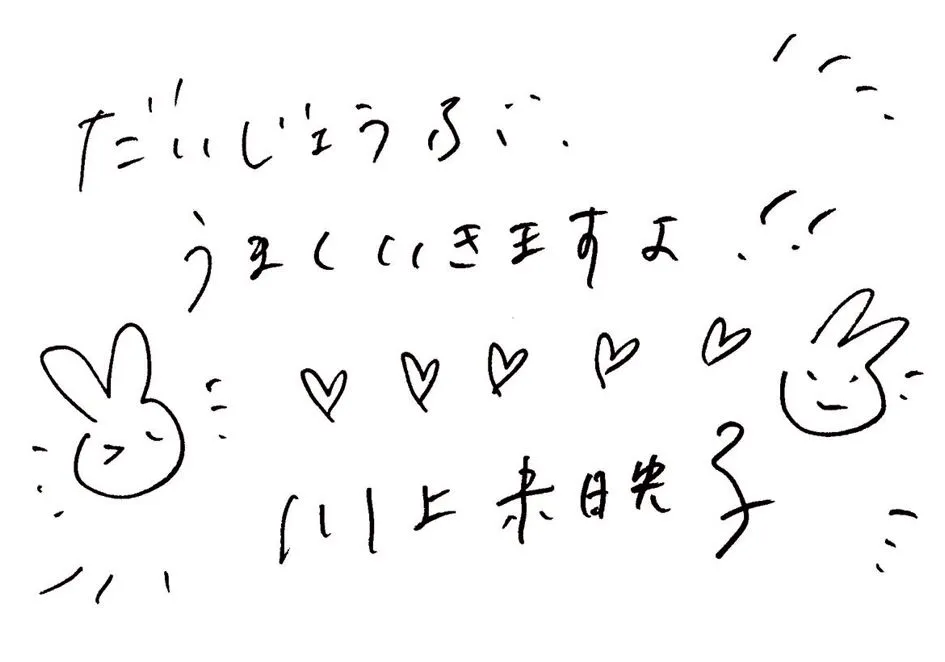 だいじょうぶ.
うまくいきますよ.
川上未映子